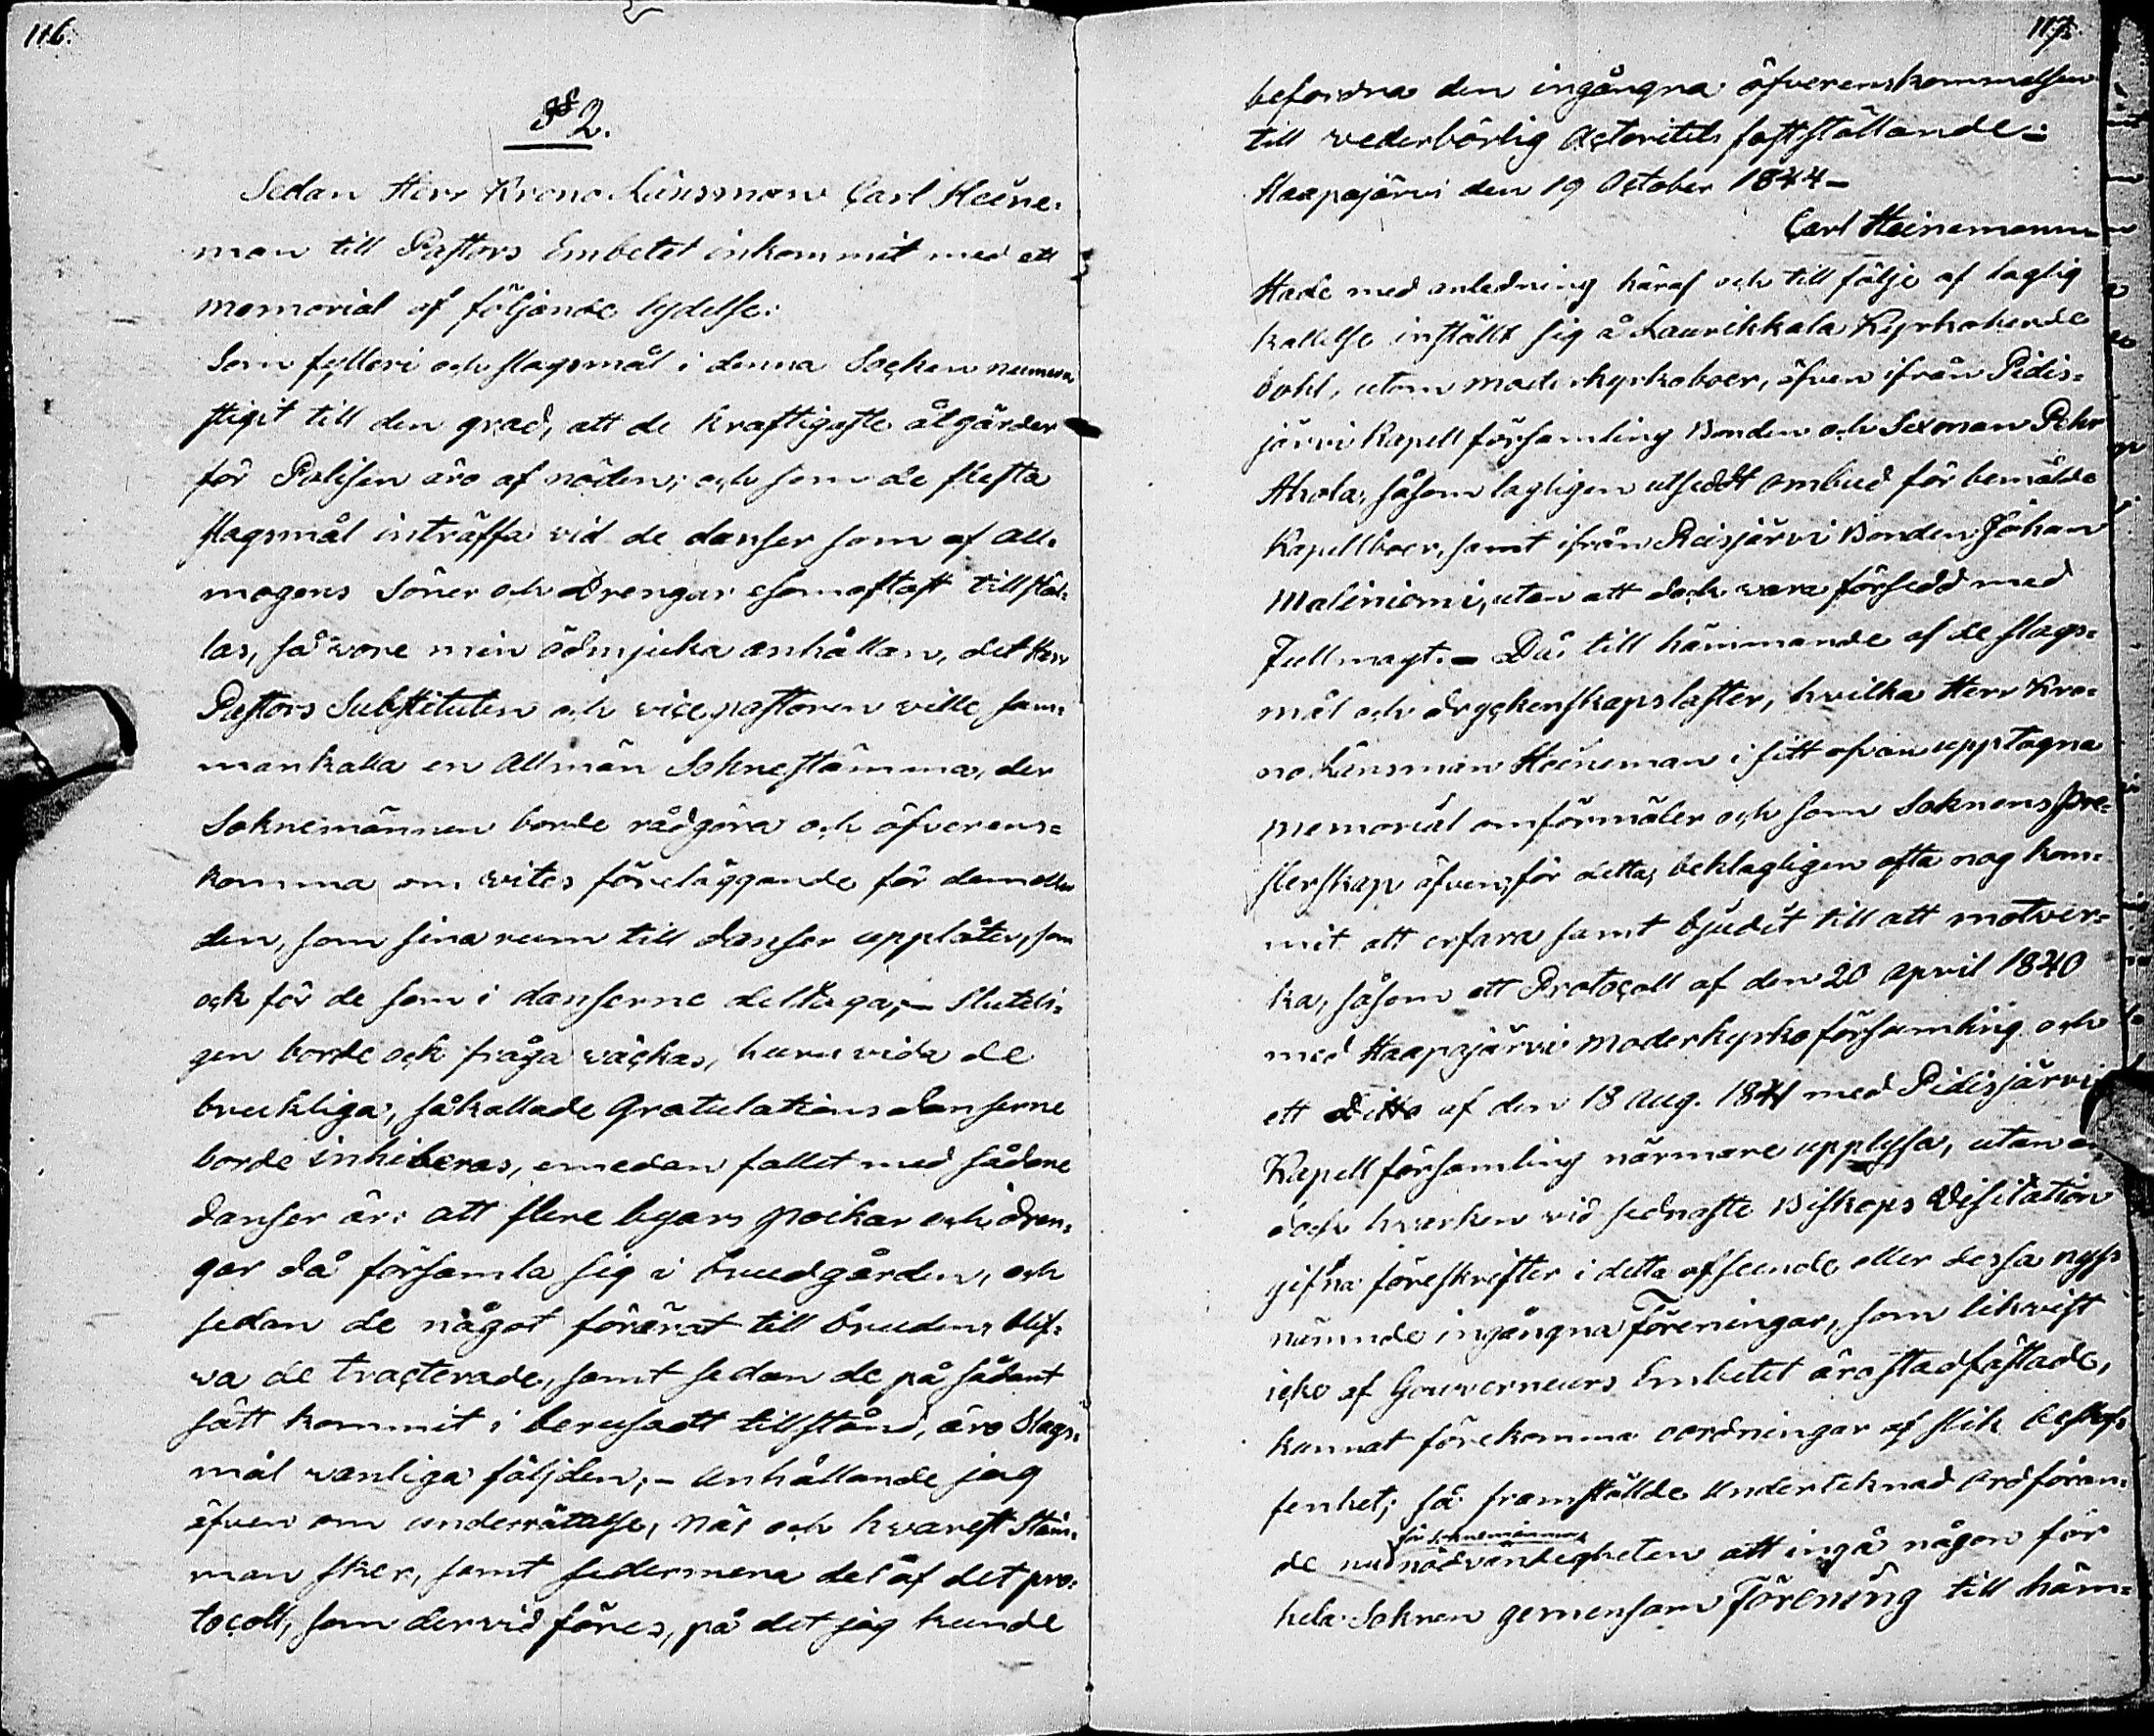 116.
§ 2.
Sedan Herr Krono Länsman Carl Heine-
man till Pastors Embetet inkommit med ett
memorial af följande lydelse:
Som fylleri och slagsmål i denna Socken numera
stigit till den grad, att de kraftigaste åtgärder
för Polisen äro af nöden; och som de flesta
slagsmål inträffa vid de danser som af all-
mogens Söner och Drengar esomoftast tillstäl-
las, så vore min ödmjuka anhållan, det Herr
Pastors Substituten och vice pastoren ville sam-
mankalla en Allmän Sohnestämma, der
Soknemännen borde rådgöra och öfverens-
komma om vites föreläggande för den eller
den, som sina rum till danser upplåter, som
ock för de som i danserne deltaga; - Slutli-
gen borde ock fråga väckas, huruvida de
brukliga, såkallade Gratulations danserne
borde inhiberas, emedan fallet med sådane
danser är: att flere byars poikar och drän-
gar då församla sig i brudgården, och
sedan de något förärat till bruden, blif-
va de tracterade, samt sedan de på sådant
sätt kommit i berusadt tillstånd, äro Slags-
mål vanliga följden; - Anhållande jag
äfven om underrättelse, när och hvarest Stäm-
man sker, samt sedermera del af det pro-
tocoll, som dervid föres, på det jag kunde
117.
befordra den ingångna öfverenskommelsen
till vederbörlig Actoritets fastställande.-
Haapajärvi den 19 October 1844-
Carl Heinemann
Hade med anledning häraf och till följe af laglig
kallelse inställt sig å Laurikkala Kyrkoherde
bohl, utom moderkyrkoboer, äfven ifrån Pidis-
järvi Kapell församling Bonden och Sexman Pehr
Ahola, såsom lagligen utsedt ombud för bemälde
Kapellboer, samt ifrån Reisjärvi Bonden Johan
Maliniemi, utan att dock vara försedd med
Fullmagt. - Då till hämmande af de slags-
mål och dryckenskapslaster, hvilka Herr Kro-
no Länsman Heineman i sitt ofvan upptagna
memorial omförmäler och som Soknens pre-
sterskap äfven, för detta, beklagligen ofta nog kom-
mit att erfara samt bjudit till att motver-
ka, såsom ett Protocoll af den 20 April 1840
med Haapajärvi moderkyrko församling och
ett Ditto af den 13 Aug. 1841 med Pidisjärvi
Kapell församling närmare upplysa, utan att
dock hvarken vid sednaste Biskops Visitation
gifna föreskrifter i detta afseende eller dessa nyss
nämnde ingångna Föreningar, som likvist
icke af Gouverneurs Embetet äro stadfästade,
kunnat förekomma oordningar af slik beskaf-
fenhet; så framställde undertecknad ordföran-
de nu för soknemännerna nödvändigheten att ingå någon för
hela Soknen gemensam Förening till häm-